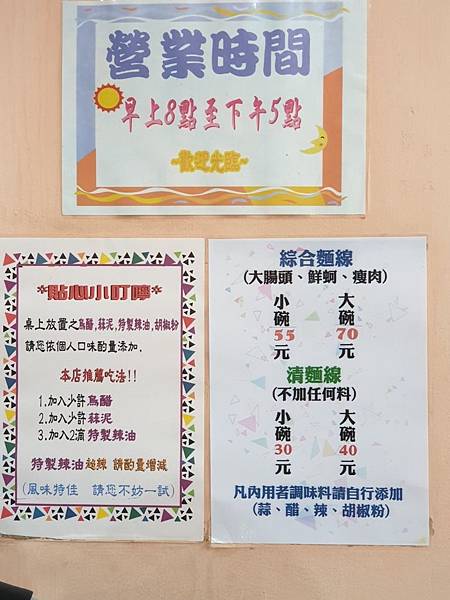 營業時間
早上8點至下午5點
~歡迎光臨~
*貼心小叮嚀*
桌上放置之烏醋,蒜泥,特製辣油,胡椒粉
請您依個人口味酌量添加.
本店推薦吃法!!
1.加入少許烏醋
2.加入少許蒜泥
3.加入2滴特製辣油
特製辣油超辣 請酌量增減
(風味特佳 請您不妨一試)
綜合麵線
(大腸頭、鮮蚵、瘦肉)
小碗55元
大碗70元
清麵線
(不加任何料)
小碗30元
大碗40元
凡內用者調味料請自行添加
(蒜、醋、辣、胡椒粉)